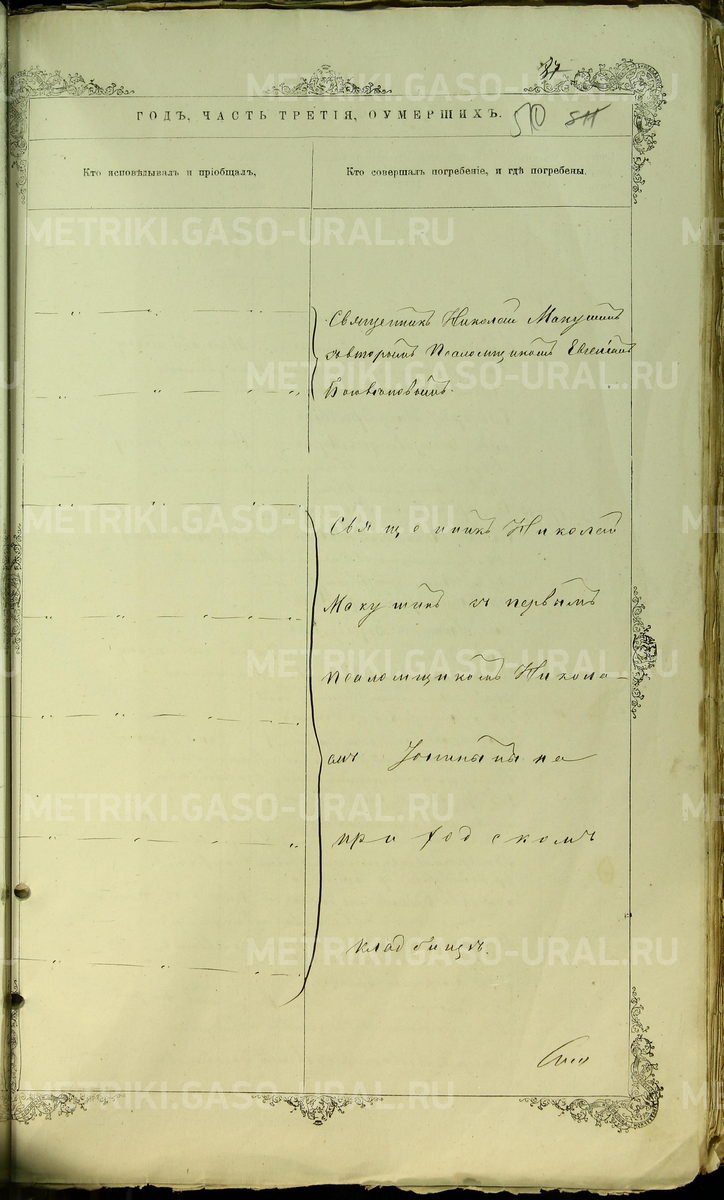 37
ГОДЪ, ЧАСТЬ ТРЕТІЯ, О УМЕРШИХЪ.
510 511
Кто исповѣдывалъ и пріобщалъ,
Кто совершалъ погребеніе, и гдѣ погребены.
Священникъ Николай Макушинъ
съ вторымъ Псаломщикомъ Евгеніемъ
Священникъ Николай
Макушинъ съ первымъ
псаломщикомъ Никола-
емъ на
приходскомъ
кладбищѣ.
METRIKI.GASO-URAL.RU